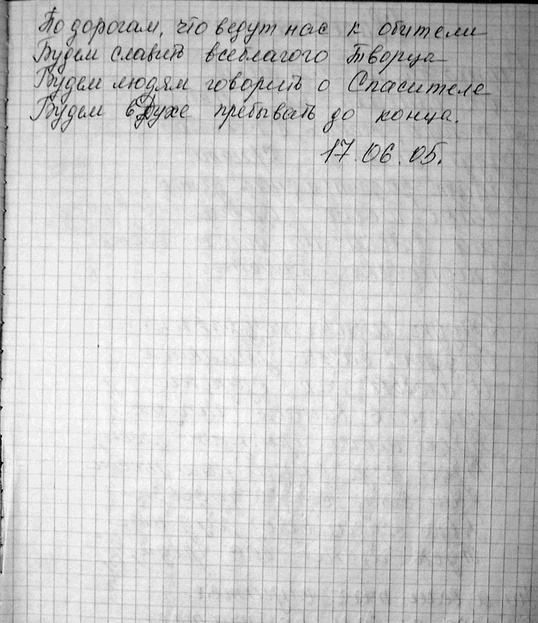 По дорогам, что ведут нас к обители
Будем славить всеблагого Творца
Будем людям говорить о Спасителе
Будем в Духе пребывать до конца.
17.06.05.